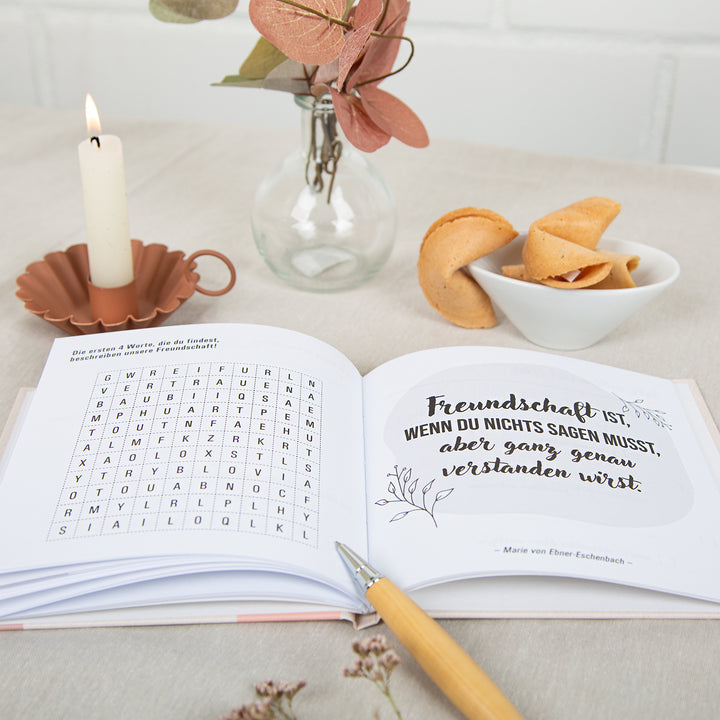 Die ersten 4 Worte, die du findest,
beschreiben unsere Freundschaft!
G W R E I F U R L N
V E R T R A U E N A
B A U B I I Q S A E
M P H U A R T P E M
T O U T N F A E H U
A L M F K Z R K R T
X A O L O X S T L S
Y T R Y B L O V I A
O T O U A B N O C F
R M Y L R L P L H Y
S I A I L O Q L K L
Freundschaft IST,
WENN DU NICHTS SAGEN MUSST,
aber ganz genau
verstanden wirst.
– Marie von Ebner-Eschenbach –